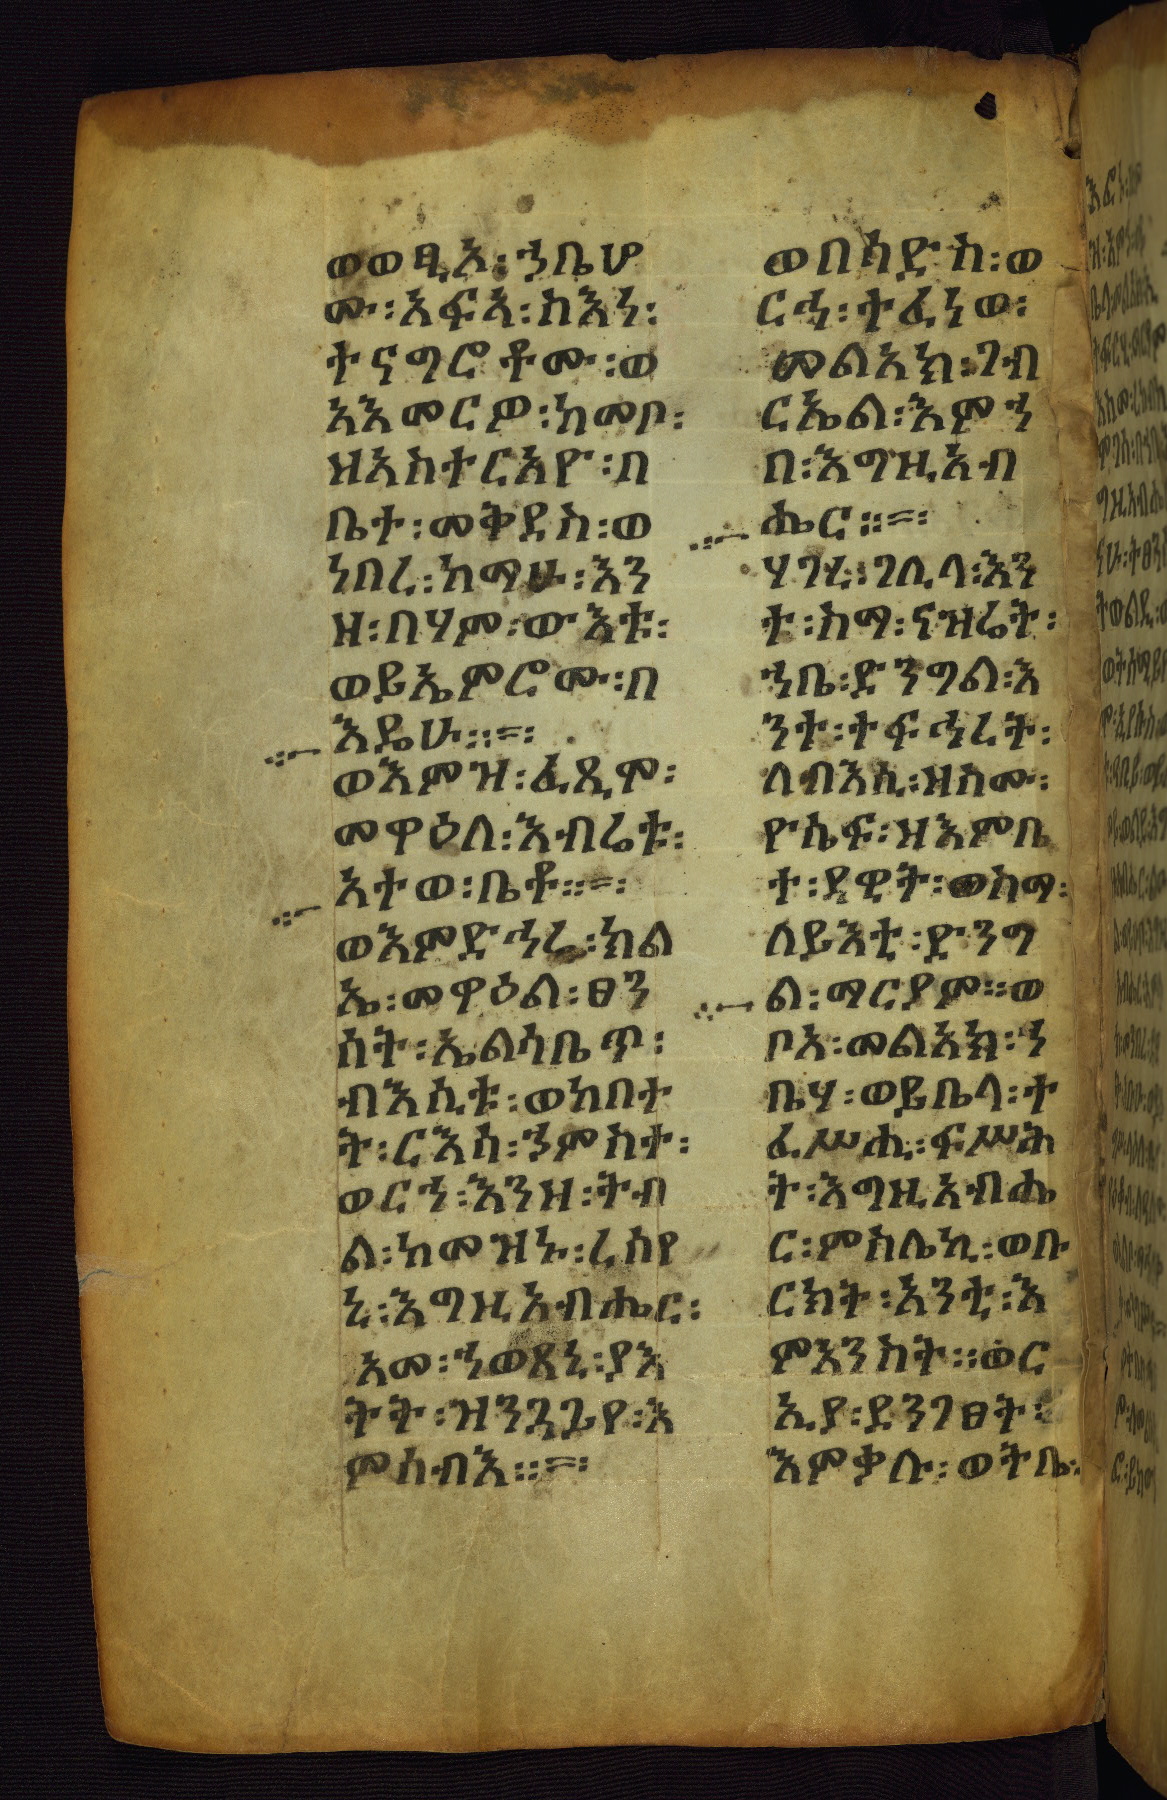 ወወፂኦ፡ኀቤሆ
ሙ፡እፍኣ፡ስእነ፡
ተናግሮቶሙ፡ወ
አእመርዎ፡ከመቦ፡
ዝአስተርአዮ፡በ
ቤተ፡መቅደስ፡ወ
ነበረ፡ከማሁ፡እን
ዘ፡በሃም፡ውእቱ፡
ወይኤምሮሙ፡በ
እዴሁ።፡=፡
ወእምዝ፡ፈጺሞ፡
መዋዕለ፡እብሬቱ፡
አተወ፡ቤቶ።=፡
ወእምድኅረ፡ክል
ኤ፡መዋዕል፡ፀን
ሰት፡ኤልሳቤጥ፡
ብእሲቱ፡ወከበተ
ት፡ርእሰ፡ኀምስተ፡
ወርኀ፡እንዘ፡ትብ
ል፡ከመዝኑ፡ረሰየ
ኒ፡እግዚአብሔር፡
አመ፡ኀወጸኒ፡ያእ
ትት፡ዝንጓጔየ፡እ
ምሰብእ።፡=፡
ወበሳድስ፡ወ
ርኅ፡ተፈነወ፡
መልአክ፡ገብ
ርኤል፡እምኀ
በ፡እግዚአብ
ሔር።፡=፡
ሃገረ፡ገሊላ፡እን
ተ፡ስማ፡ናዝሬት፡
ኀቤ፡ድንግል፡እ
ንተ፡ተፍኅረት፡
ለብእሲ፡ዘስሙ፡
ዮሴፍ፡ዝእምቤ
ተ፡ዳዊት፡ወስማ፡
ለይእቲ፡ድንግ
ል፡ማርያም።ወ
ቦአ፡መልአክ፡ኀ
ቤሃ፡ወይቤላ፡ተ
ፈሥሒ፡ፍሥሕ
ት፡እግዚአብሔ
ር፡ምስሌኪ፡ወቡ
ርክት፡አንቲ፡እ
ምእንስት።ወር
ኢያ፡ደንገፀት፡
እምቃሉ፡ወትቤ፡